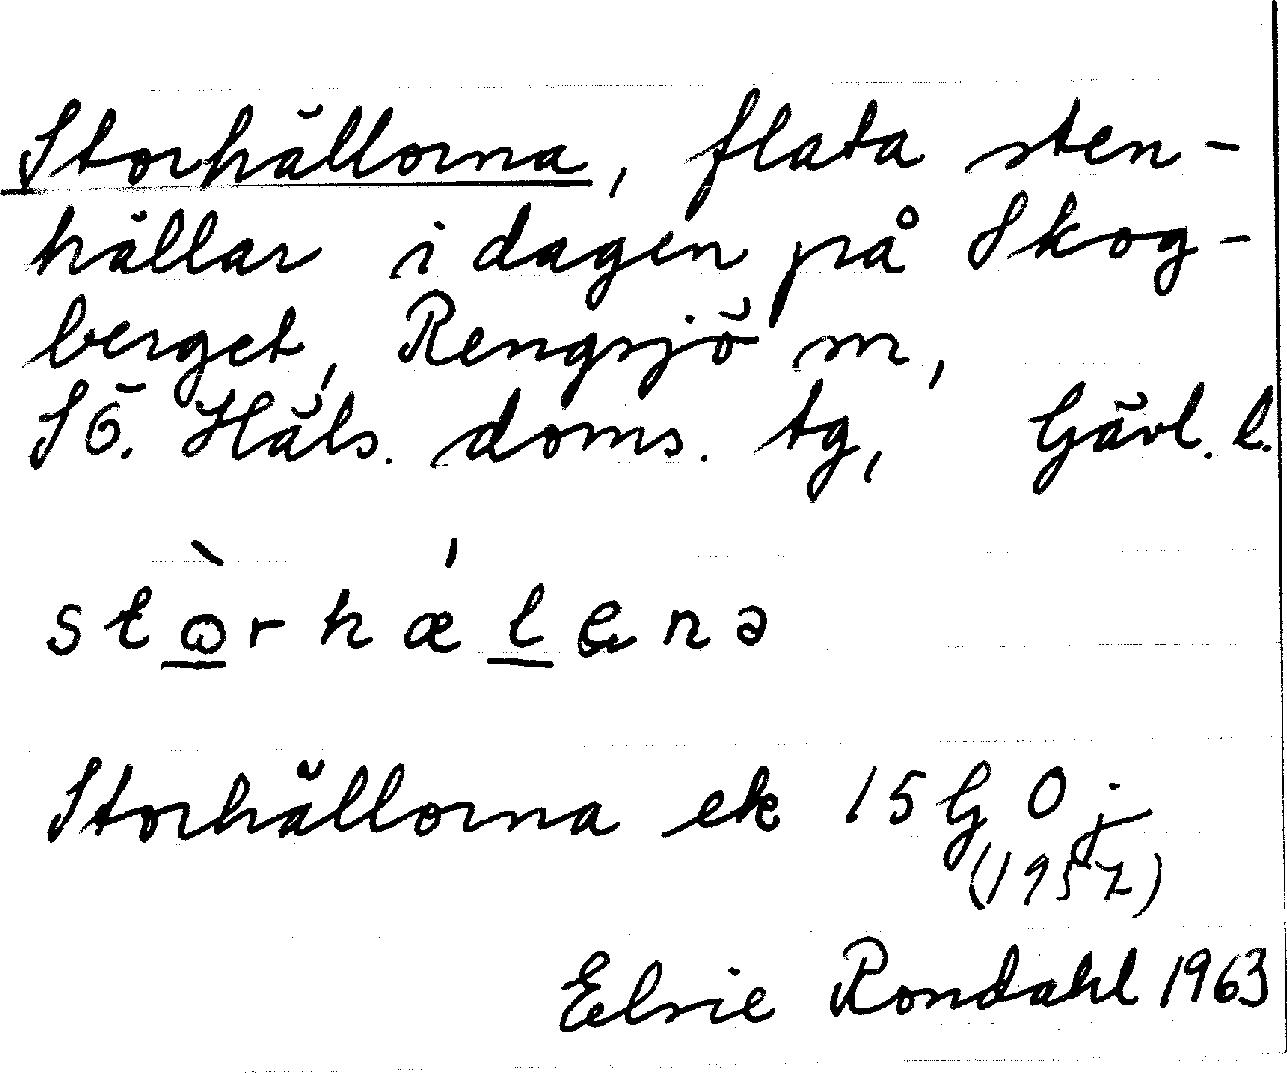 Storhällorna, flata sten-
hällar i dagen på Skog-
berget, Rengsjö sn,
SÖ. Häls. doms. tg, Gävl. l.
stò̱rhǽḻɷnə
Storhällorna ek 15G 0j
(1957)
Elsie Rondahl 1963